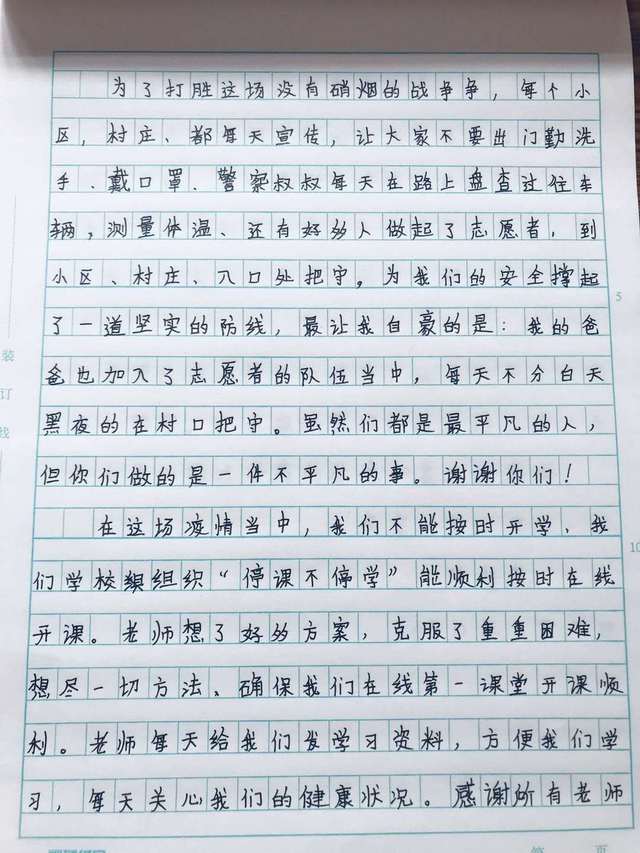 为了打胜这场没有硝烟的战争争，每个小
区，村庄、都每天宣传，让大家不要出门勤洗
手、戴口罩、警察叔叔每天在路上盘查过往车
辆，测量体温、还有好多人做起了志愿者，到
小区、村庄、入口处把守。为我们的安全撑起
了一道坚实的防线，最让我自豪的是：我的爸
爸也加入了志愿者的队伍当中，每天不分白天
黑夜的在村口把守。虽然们都是最平凡的人，
但你们做的是一件不平凡的事。谢谢你们！
在这场疫情当中，我们不能按时开学、我
们学校组织“停课不停学”能顺利按时在线
开课。老师想了好多方案，克服了重重困难，
想尽一切方法、确保我们在线第一课堂开课顺
利。老师每天给我们发学习资料，方便我们学
习，每天关心我们的健康状况。感谢所有老师
装
订
线
5
10
第 页